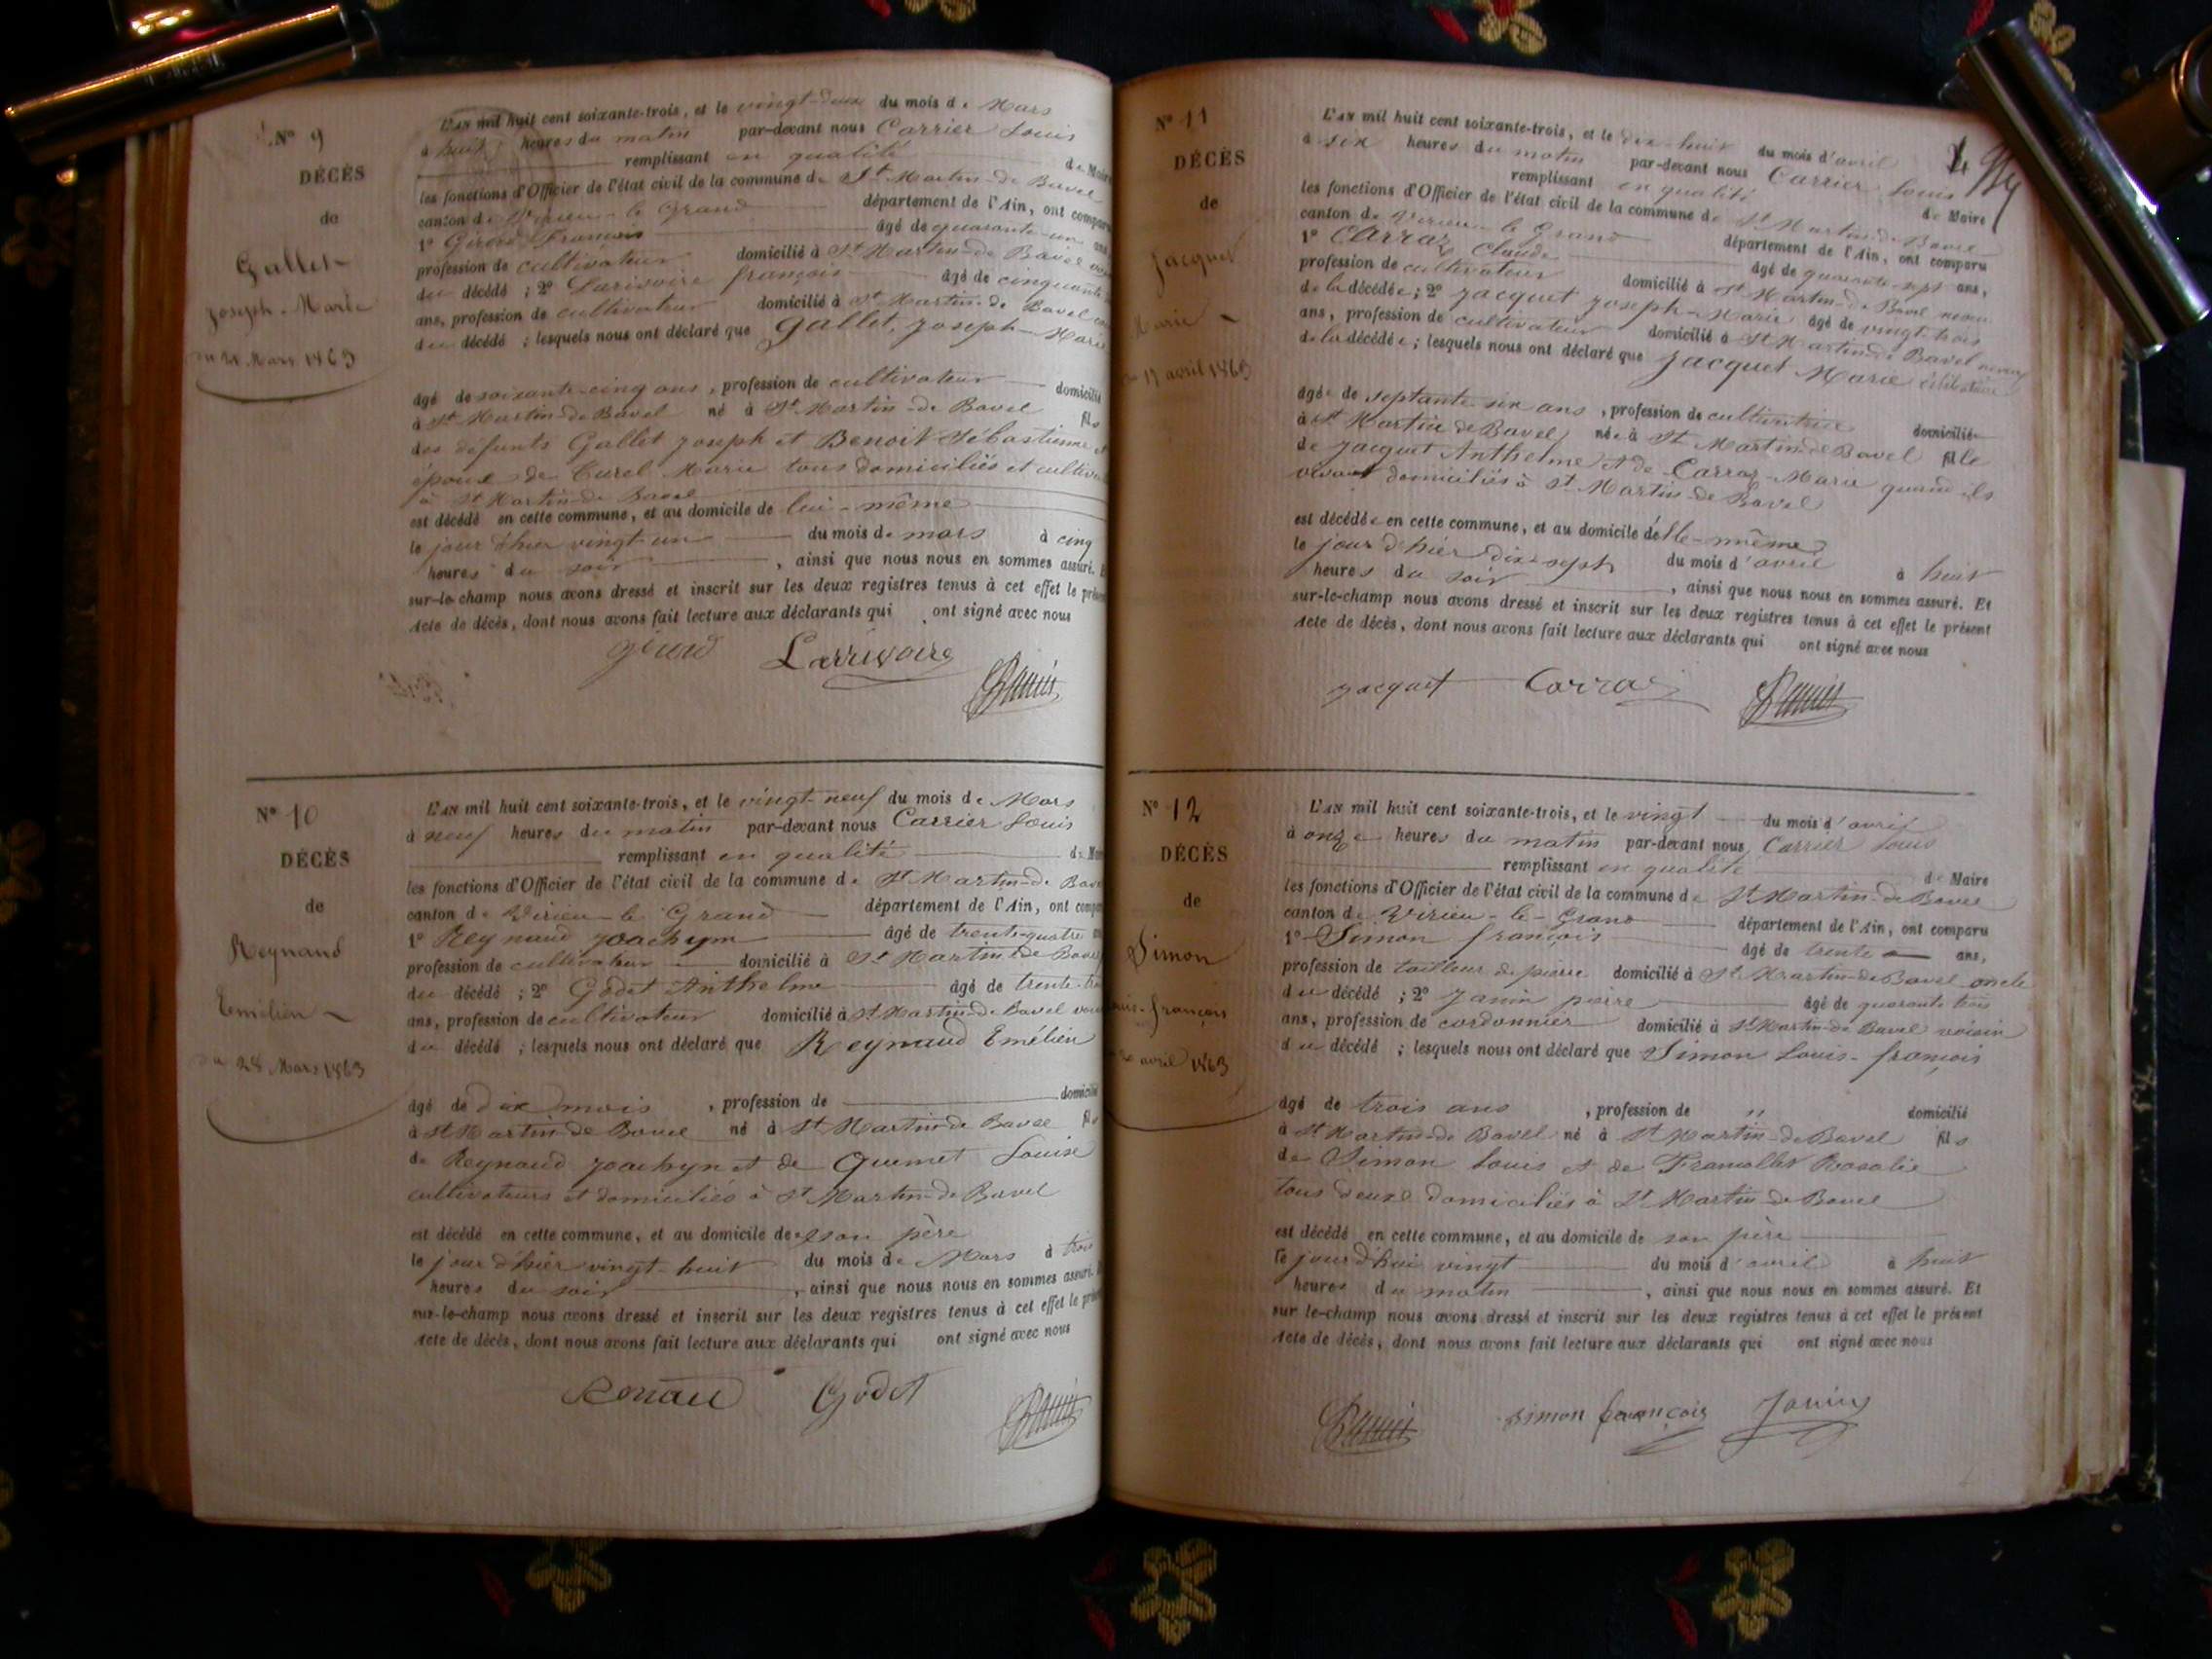 N° 9
DÉCÈS
de
Gallet
Joseph-Marie
du 21 Mars 1863
L'AN mil huit cent soixante-trois, et le vingt-deux du mois de Mars
à huit heures du matin par-devant nous Carrier Louis
remplissant en qualité de Maire
les fonctions d'Officier de l'état civil de la commune de St Martin-de Bavel
canton de Virieu-le Grand département de l'Ain, ont comparu
1° Girord François âgé de quarante-un ans
profession de cultivateur domicilié à St Martin-de Bavel
du décédé ; 2° Larivoire françois âgé de cinquante
ans, profession de cultivateur domicilié à St Martin-de Bavel
du décédé ; lesquels nous ont déclaré que Gallet, Joseph-Marie
âgé de soixante-cinq ans, profession de cultivateur domicilié
à St Martin-de Bavel né à St Martin-de Bavel fils
des défunts Gallet Joseph et Benoit Sébastienne et
époux de Curel Marie tous domiciliés et
à St Martin-de Bavel
est décédé en cette commune, et au domicile de lui-même
le jour d'hier vingt-un du mois de mars à cinq
heures du soir, ainsi que nous nous en sommes assuré.
sur-le-champ nous avons dressé et inscrit sur les deux registres tenus à cet effet le
Acte de décès, dont nous avons fait lecture aux déclarants qui ont signé avec nous
Larrivoire
N° 10
DÉCÈS
de
Reynaud
Emélien
du 28 Mars 1863
L'AN mil huit cent soixante-trois, et le vingt-neuf du mois de Mars
à neuf heures du matin par-devant nous Carrier Louis
remplissant en qualité de
les fonctions d'Officier de l'état civil de la commune de St Martin-de
canton de Virieu-le Grand département de l'Ain, ont
1° Reynaud Joachym âgé de trente-quatre
profession de cultivateur domicilié à St Martin-de
du décédé ; 2° Godet Anthelme âgé de trente-
ans, profession de cultivateur domicilié à St Martin-de Bavel
du décédé ; lesquels nous ont déclaré que Reynaud Emélien
âgé de dix mois, profession de domicilié
à St Martin-de Bavel né à St Martin-de Bavel fils
de Reynaud Joachyn et de Quemet Louise
cultivateurs et domiciliés à St Martin-de Bavel
est décédé en cette commune, et au domicile de son père
le jour d'hier vingt-huit du mois de Mars à trois
heures du soir, ainsi que nous nous en sommes assuré.
sur-le-champ nous avons dressé et inscrit sur les deux registres tenus à cet effet le
Acte de décès, dont nous avons fait lecture aux déclarants qui ont signé avec nous
Godet
N° 11
DÉCÈS
de
Jacquet
Marie
17 avril 1863
L'AN mil huit cent soixante-trois, et le dix-huit du mois d'avril
à six heures du matin par-devant nous Carrier Louis
remplissant en qualité de Maire
les fonctions d'Officier de l'état civil de la commune de St Martin-de Bavel
canton de Virieu-le Grand département de l'Ain, ont comparu
1° Carraz Claude âgé de quarante-sept ans,
profession de cultivateur domicilié à St Martin-de Bavel neveu
de la décédée ; 2° Jacquet Joseph-Marie âgé de vingt-trois
ans, profession de cultivateur domicilié à St Martin-de Bavel neveu
de la décédée ; lesquels nous ont déclaré que Jacquet Marie célibataire
âgée de septante six ans, profession de cultivatrice domiciliée
à St Martin de Bavel née à St Martin-de Bavel fille
de Jacquet Anthelme et de Carraz Marie quand ils
vivant domiciliés à St Martin-de Bavel
est décédée en cette commune, et au domicile d'elle-même
le jour d'hier dix-sept du mois d'avril à huit
heures du soir, ainsi que nous nous en sommes assuré. Et
sur-le-champ nous avons dressé et inscrit sur les deux registres tenus à cet effet le présent
Acte de décès, dont nous avons fait lecture aux déclarants qui ont signé avec nous
Jacquet Carraz
N° 12
DÉCÈS
de
Simon
Louis-françois
20 avril 1863
L'AN mil huit cent soixante-trois, et le vingt du mois d'avril
à onze heures du matin par-devant nous Carrier Louis
remplissant en qualité de Maire
les fonctions d'Officier de l'état civil de la commune de St Martin-de Bavel
canton de Virieu-le-Grand département de l'Ain, ont comparu
1° Simon françois âgé de trente ans,
profession de tailleur de pierre domicilié à St Martin-de Bavel oncle
du décédé ; 2° Janin pierre âgé de quarante trois
ans, profession de cordonnier domicilié à St Martin-de Bavel voisin
du décédé ; lesquels nous ont déclaré que Simon Louis-françois
âgé de trois ans, profession de " domicilié
à St Martin-de Bavel né à St Martin-de Bavel fils
de Simon Louis et de Rosalie
tous deux domiciliés à St Martin-de Bavel
est décédé en cette commune, et au domicile de son père
le jourd'hui vingt du mois d'avril à huit
heures du matin, ainsi que nous nous en sommes assuré. Et
sur le-champ nous avons dressé et inscrit sur les deux registres tenus à cet effet le présent
Acte de décès, dont nous avons fait lecture aux déclarants qui ont signé avec nous
Simon françois Janin